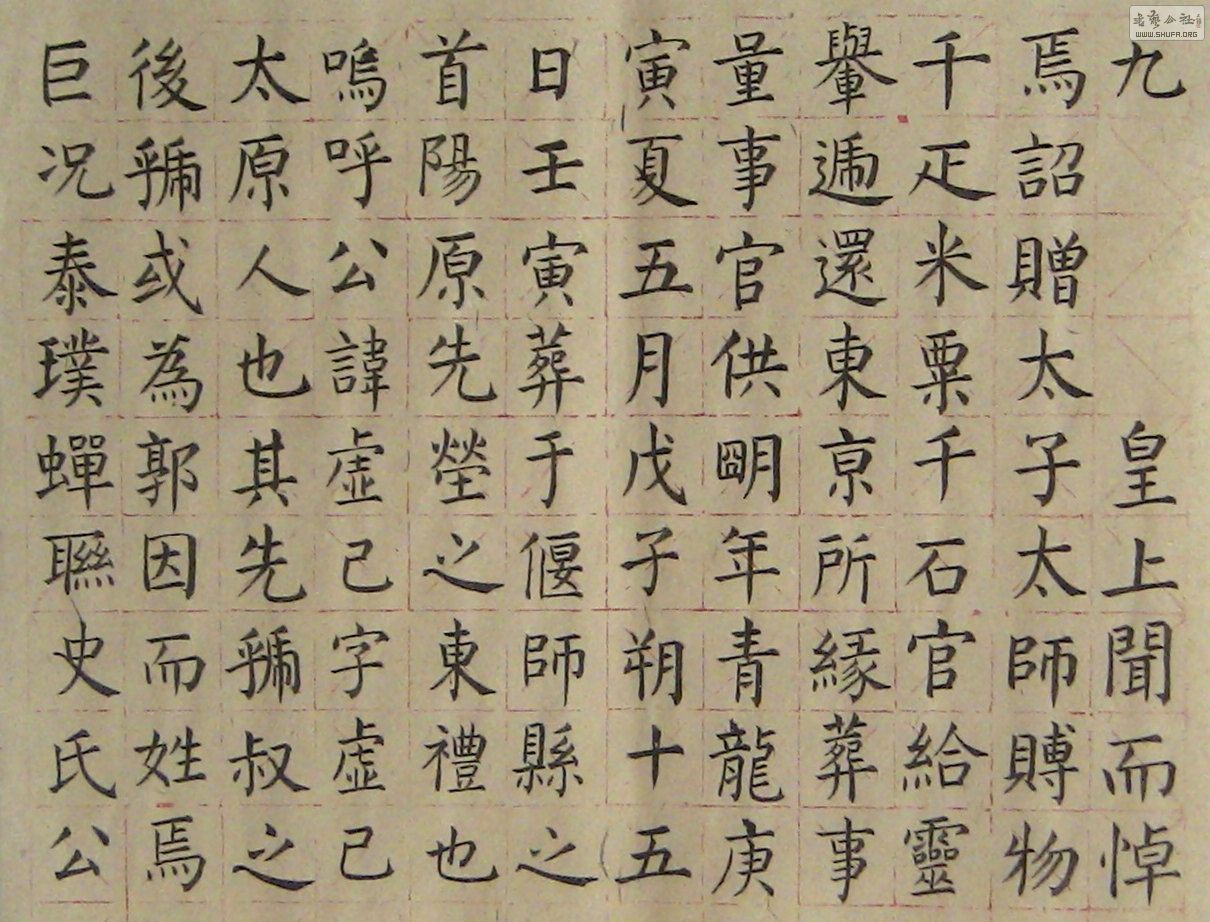 九 皇上聞而悼
焉詔贈太子太師賻物
千疋米粟千石官給靈
轝遞還東京所緣葬事
量事官供明年青龍庚
寅夏五月戊子朔十五
日壬寅葬于偃師縣之
首陽原先塋之東禮也
嗚呼公諱虛己字虛己
太原人也其先虢叔之
後虢或為郭因而姓焉
巨况泰璞蟬聯史氏公
书艺公社
WWW.SHUFA.ORG